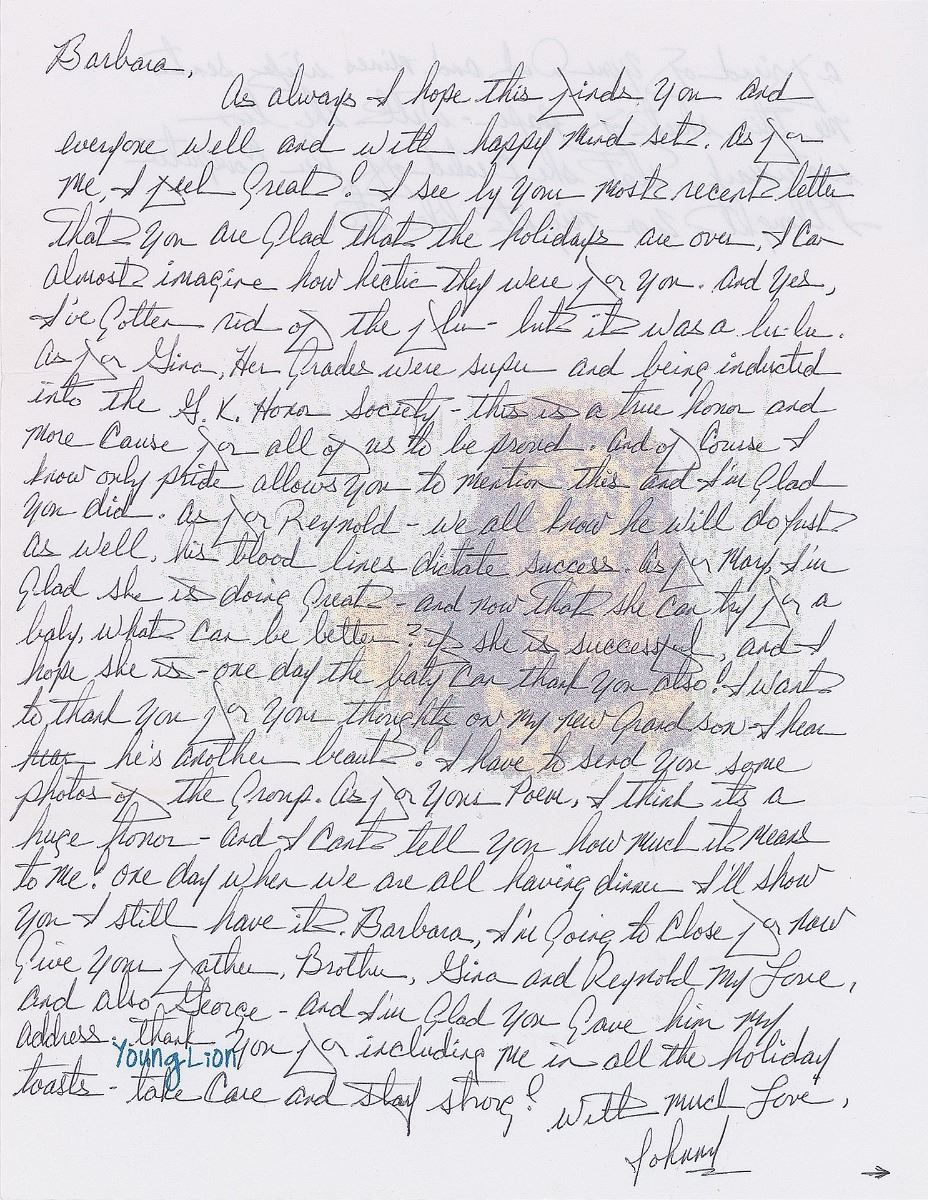 Barbara,
As always I hope this finds you and
everyone well and with happy mind set. As for
me, I feel Great! I see by your most recent letter
that you are Glad that the holidays are over, I can
almost imagine how hectic they were for you. And yes,
I've Gotten rid of the flu - but it was a lu-lu.
As for Gina, Her Grades were super and being inducted
into the G. K. Honor Society - this is a true honor and
more cause for all of us to be proud. And of course I
know only pride allows you to mention this and I'm Glad
you did. As for Reynold - we all know he will do just
as well, his blood lines dictate success. As for Mary, I'm
Glad she is doing Great - and now that she can try for a
baby, what can be better? If she is successful, and I
hope she is - one day the baby can thank you also! I want
to thank you for your thoughts on my new Grandson - I hear
he's another beaut! I have to send you some
photos of the Group. As for your Poem, I think its a
huge honor - and I cant tell you how much it means
to me! One day when we are all having dinner I'll show
you I still have it. Barbara, I'm Going to Close for now
Give your father, Brother, Gina and Reynold my Love,
and also George - and I'm Glad you Gave him my
address. Thank you for including me in all the holiday
Young Lion
toasts - take Care and stay strong!
With much Love,
Johnny
→